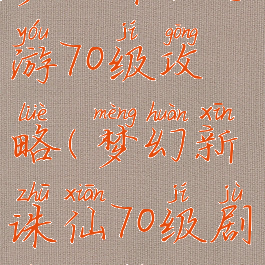 yóu jí gōng
游70级攻
lüè mèng huàn xīn
略(梦幻新
zhū xiān jí jù
诛仙70级剧